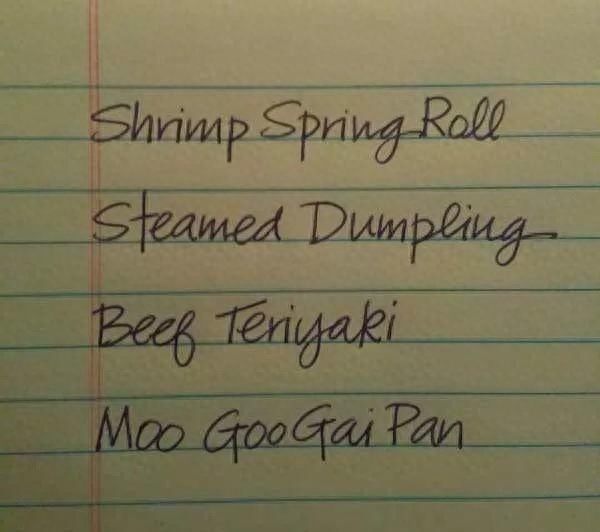 Shrimp Spring Roll
Steamed Dumpling
Beef Teriyaki
Moo Goo Gai Pan